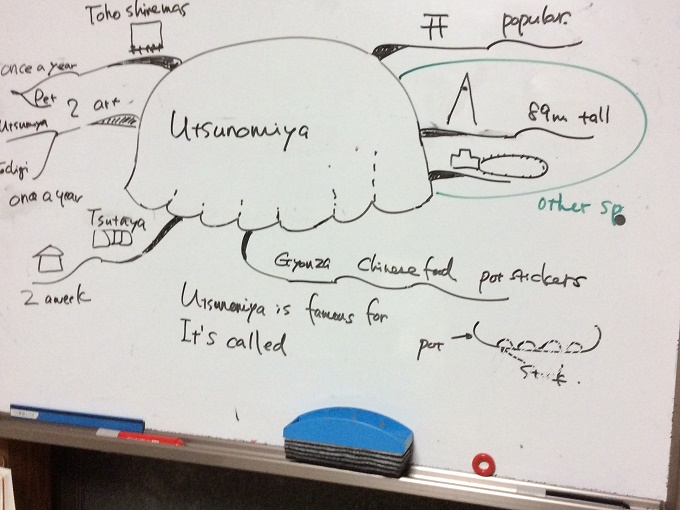 Toho shinemas
once a year
Per
2 art
Utsunmiya
Todigi
once a year
Tsutaya
2 a week
Utsunomiya
popular.
89m tall
other sp
Gyouza Chinese food pot stickers
Utsunomiya is famous for
It's called
pot